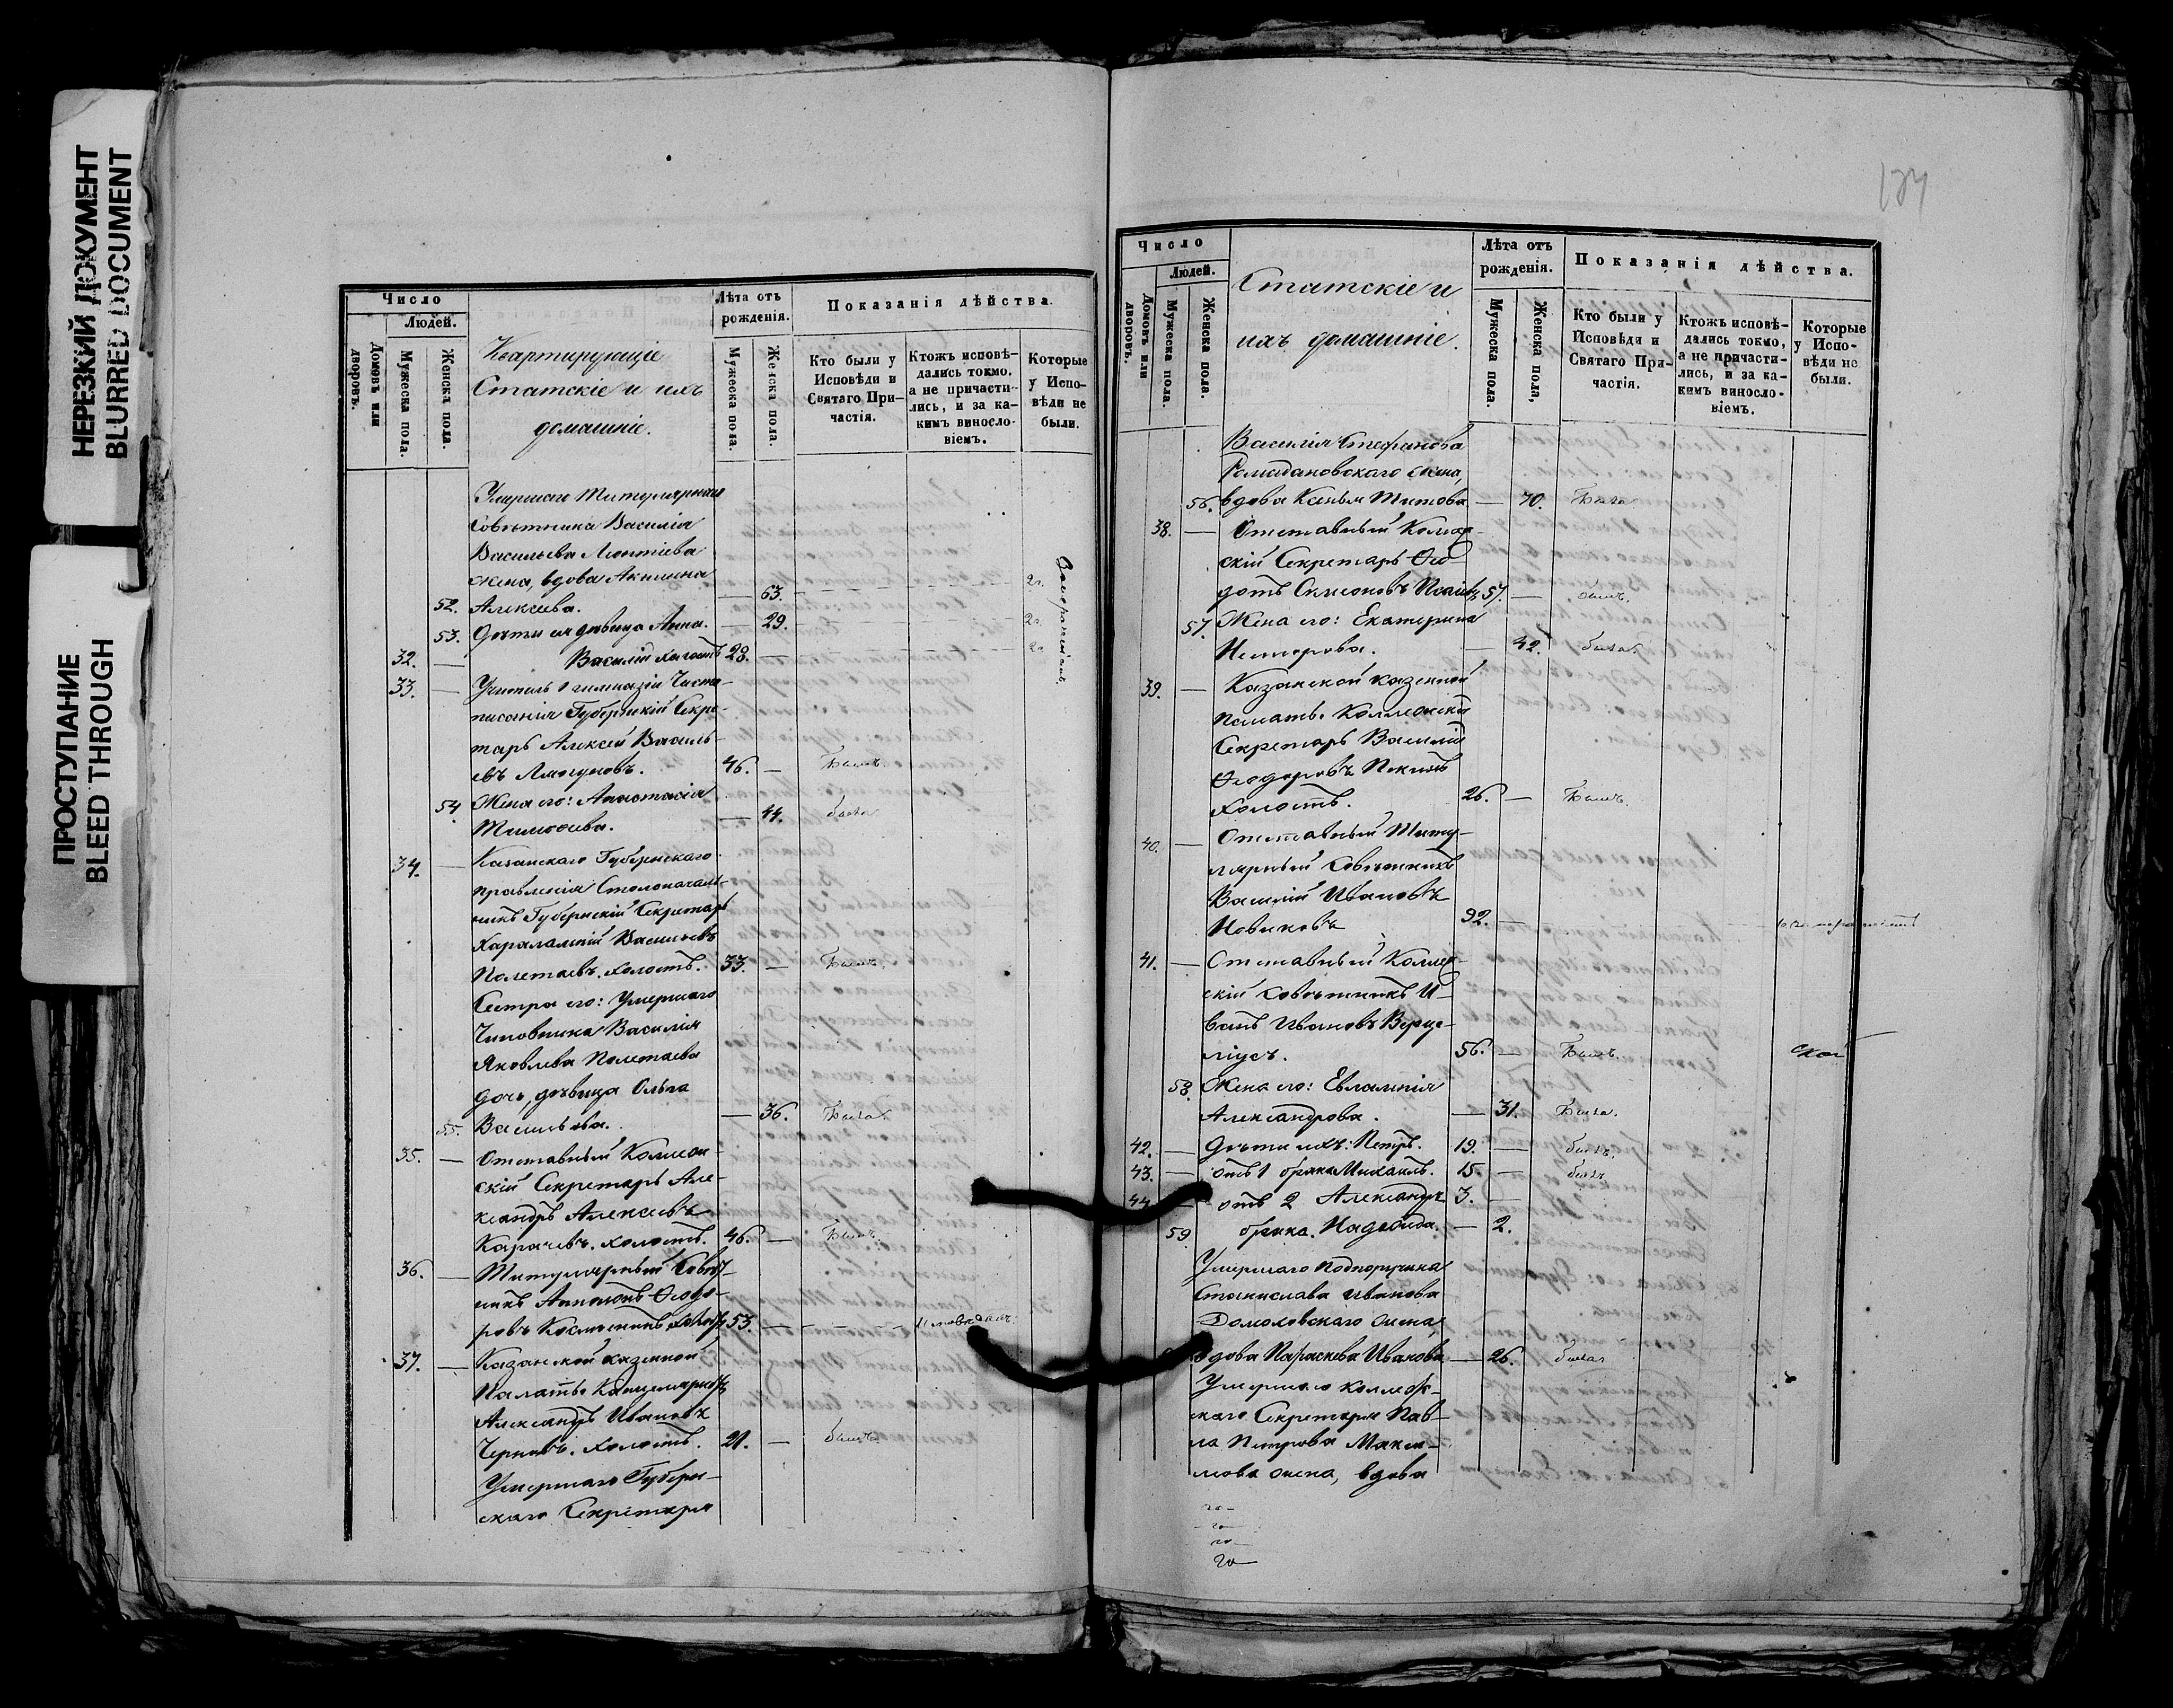 НЕРЕЗКИЙ ДОКУМЕНТ
BLURRED DOCUMENT
ПРОСТУПАНИЕ
BLEED THROUGH
Число
Людей.
Домовъ или дворовъ.
Мужеска пола.
Женска пола.
Квартирующіе
Статскіе и ихъ
домашніе.
Лѣта отъ
рожденія.
Мужеска пола.
Женска пола.
Показанія дѣйства.
Кто были у
Исповѣди и
Святаго При-
частія.
Ктожъ исповѣ-
дались токмо,
а не причасти-
лись, и за ка-
кимъ винosло-
віемъ.
Которые
у Испо-
вѣди не
были.
Умершаго Титулярнаго
Совѣтника Василія
Васильева Леонтіева
жена, вдова Акилина
52. Алексѣева. — 63.
53. Дѣти ея дѣвица Анна. — 29.
32. — Василій холостъ 28. —
33. — Учитель 1 гимназіи Чисто-
писанія Губернскій Секре-
тарь Алексѣй Василь-
евъ 46. — Былъ.
54 Жена его: Анастасія
Тимоѳеева. — 44. была
34. — Казанскаго Губернскаго
правленія Столоначаль-
никъ Губернскій Секретарь
Харалампій Васильевъ
Полетаевъ. холостъ. 33. — Былъ.
Сестра его: Умершаго
Чиновника Василія
Яковлева Полетаева
дочь, дѣвица Ольга
55. Васильева. — 36. Была.
35. — Отставный Коллеж-
скій Секретарь Але-
ксандръ Алексѣевъ
Карачевъ. холостъ. 46. — Былъ.
36. — Титулярный Совѣт-
никъ Ѳеодо-
ровъ 53. —
37. — Казанской казенной
Палаты Канцеляристъ
Александръ Ивановъ
Черновъ. холостъ. 21. — былъ
Умершаго Губерн-
скаго Секретаря
134
Число
Людей.
Домовъ или дворовъ.
Мужеска пола.
Женска пола.
Статскіе и
ихъ домашніе.
Лѣта отъ
рожденія.
Мужеска пола.
Женска пола,
Показанія дѣйства.
Кто были у
Исповѣди и
Святаго При-
частія.
Ктожъ исповѣ-
дались токмо,
а не причасти-
лись, и за ка-
кимъ винosло-
віемъ.
Которые
у Испо-
вѣди не
были.
Василія Стефанова
Ромадановскаго жена,
56. вдова Ксенья Титова — 70. Была
38. — Отставный Коллеж-
скій Секретарь Ѳео-
дотъ Симеоновъ 57. — былъ.
57. Жена его: Екатерина
Нестерова. — 42. была.
39. — Казанской казенной
палаты Коллежскій
Секретарь Василій
Ѳеодоровъ
холостъ. 26. — Былъ.
40. — Отставный Титу-
лярный Совѣтникъ
Василій Ивановъ
Новиковъ 92. —
41. — Отставный Коллеж-
скій Совѣтникъ И-
ванъ Ивановъ Верце-
ліусъ. 56. — Былъ.
58. Жена его: Евлампія
Александрова. — 31. Была.
42. — Дѣти ихъ: Петръ. 19. — былъ.
43. — отъ 1 брака Михаилъ. 15. — былъ
44. — отъ 2 Александръ 3. —
59. брака. Надежда. — 2.
Умершаго Подпоручика
Станислава Иванова
Домоховскаго жена,
вдова Параскева Иванова — 26. была
Умершаго Коллеж-
скаго Секретаря Пав-
ла Петрова Макси-
мова жена, вдова